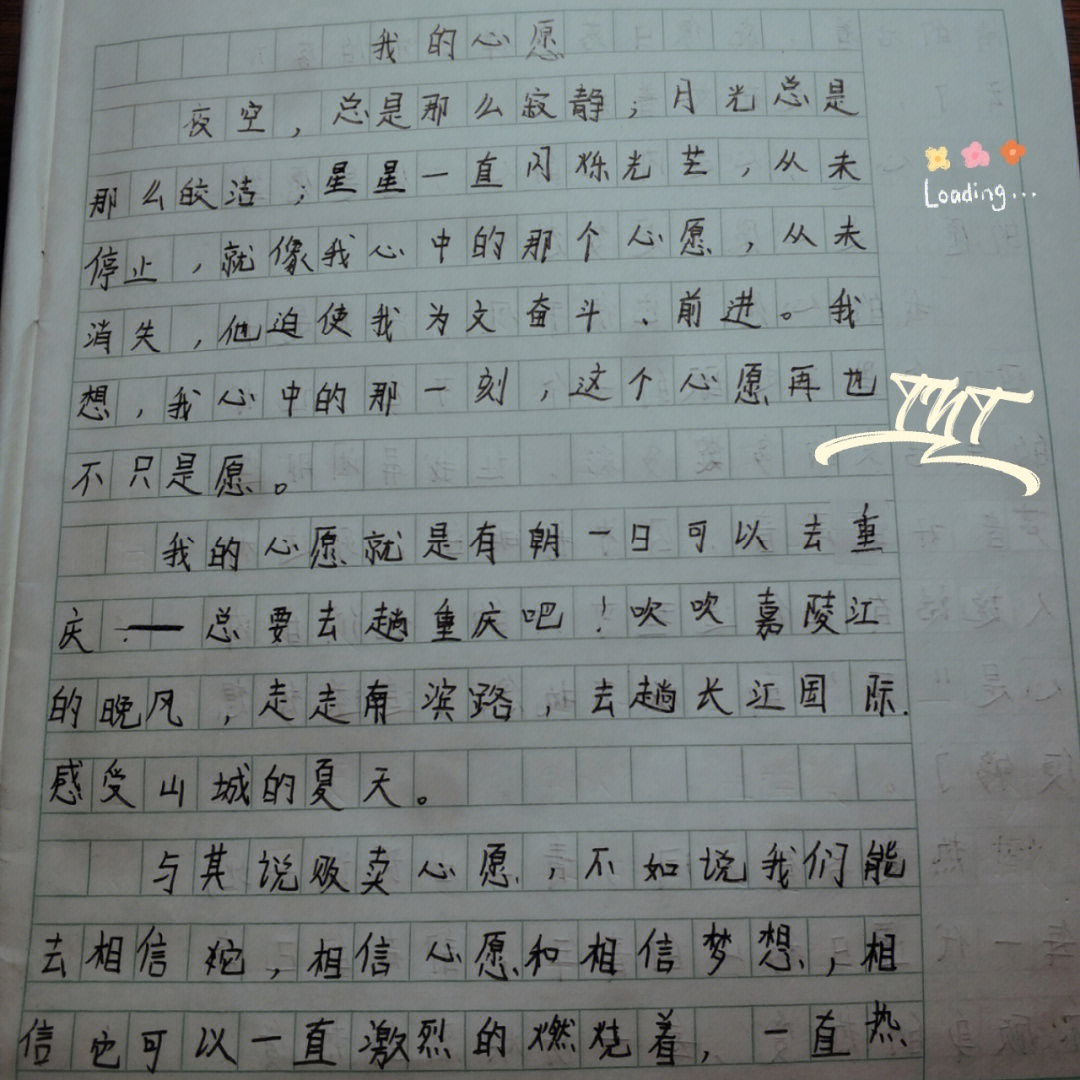 我的心愿
夜空，总是那么寂静；月光总是
那么的皎洁；星星一直闪烁光芒，从未
停止，就像我心中的那个心愿，从未
消失，他迫使我为文奋斗、前进。我
想，我心中的那一刻，这个心愿再也
不只是愿。
我的心愿就是有朝一日可以去重
庆——总要去趟重庆吧！吹吹嘉陵江
的晚风，走走南滨路，去趟长江国际.
感受山城的夏天。
与其说贩卖心愿，不如说我们能
去相信，相信心愿和相信梦想，相
信它可以一直激烈的燃烧着，一直热
Loading...
TNT